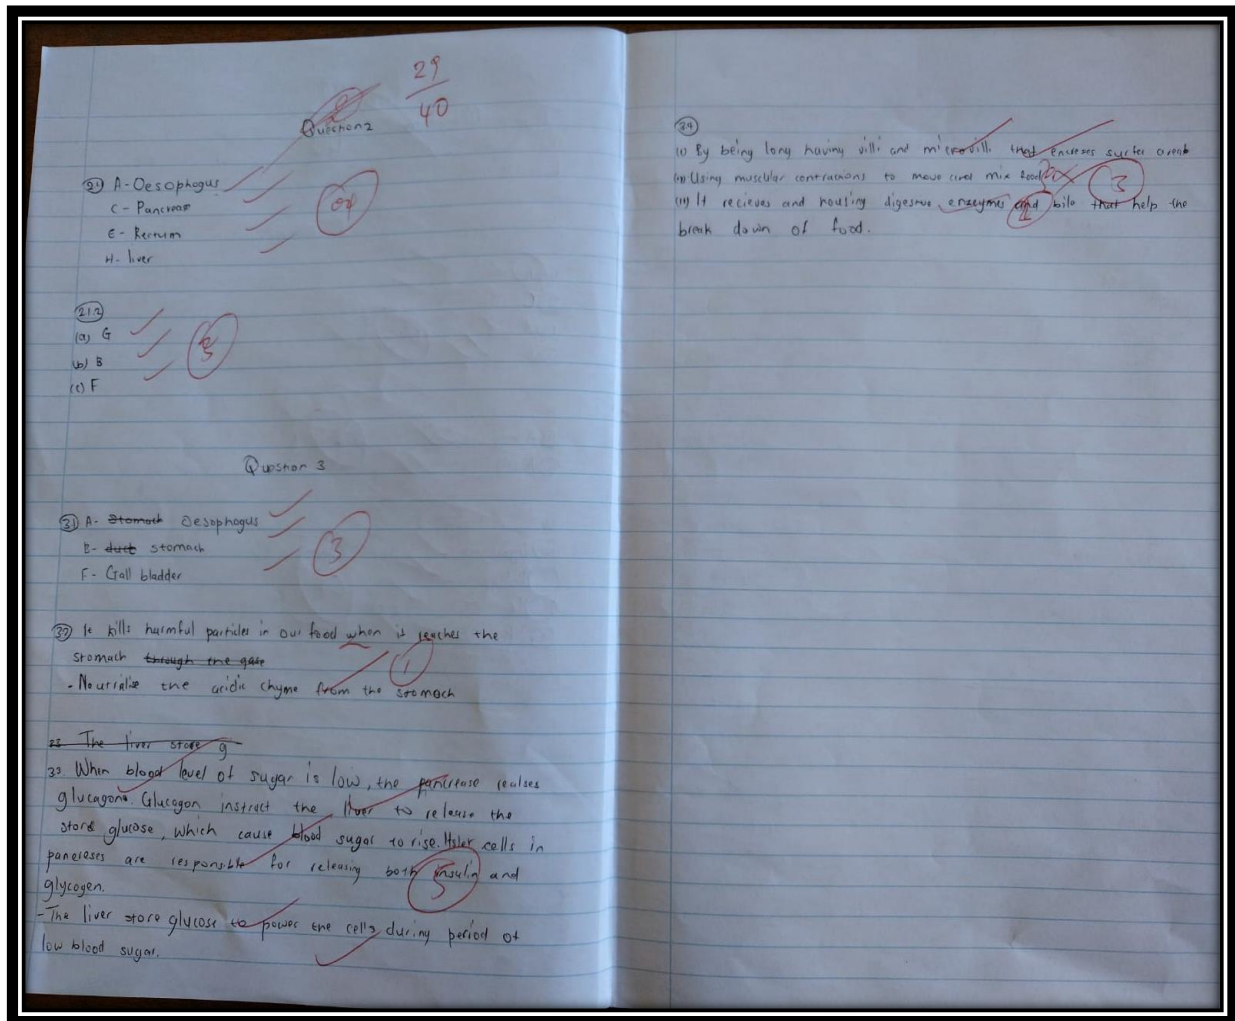 29
40
Question 2
21 A - Oesophagus
C - Pancreas
E - Rectum
H - liver
04
21.2
(a) G
(b) B
(c) F
3
Question 3
31 A - Stomach Oesophagus
B - duct stomach
F - Gall bladder
3
32 It kills harmful particles in our food when it reaches the
stomach through the
- Neutralise the acidic chyme from the stomach
1
The liver store g
33. When blood level of sugar is low, the pancrease realses
glucagon. Glucogon instruct the liver to release the
store glucose, which cause blood sugar to rise. cells in
pancreses are responsible for releasing both insulin and
glycogen.
5
- The liver store glucose to power the cells during period of
low blood sugar.
34
(i) By being long having villi and microvilli that encreses surfes areab
(ii) Using muscular contractions to move and mix food
3
(iii) It recieves and digestive enzeymes and bile that help the
break down of food.